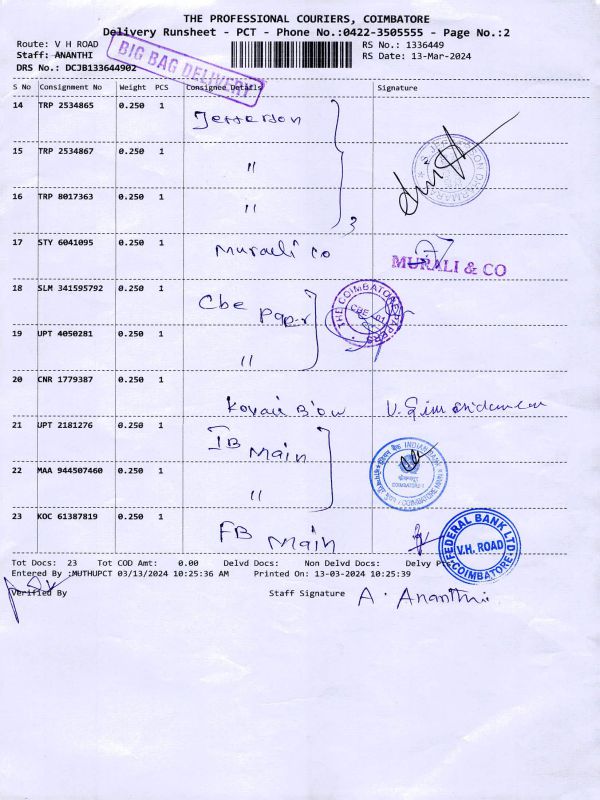 THE PROFESSIONAL COURIERS, COIMBATORE
Delivery Runsheet - PCT - Phone No.:0422-3505555 - Page No.:2
Route: V H ROAD
Staff: ANANTHI
DRS No.: DCJB133644902
BIG BAG DELIVERY
RS No.: 1336449
RS Date: 13-Mar-2024
S No Consignment No Weight PCS Consignee Details Signature
14 TRP 2534865 0.250 1 Jefferson
15 TRP 2534867 0.250 1 "
16 TRP 8017363 0.250 1 "
3
17 STY 6041095 0.250 1 Murali co
MURALI & CO
18 SLM 341595792 0.250 1 Cbe Paper
THE COIMBATORE PAPERS
19 UPT 4050281 0.250 1 "
20 CNR 1779387 0.250 1 Kovai
21 UPT 2181276 0.250 1 IB Main
INDIAN BANK
COIMBATORE MAIN
22 MAA 944507460 0.250 1 "
23 KOC 61387819 0.250 1 FB Main
FEDERAL BANK LTD.
V.H. ROAD
COIMBATORE
Tot Docs: 23 Tot COD Amt: 0.00 Delvd Docs: Non Delvd Docs: Delvy
Entered By :MUTHUPCT 03/13/2024 10:25:36 AM Printed On: 13-03-2024 10:25:39
Verified By Staff Signature A. Ananthi